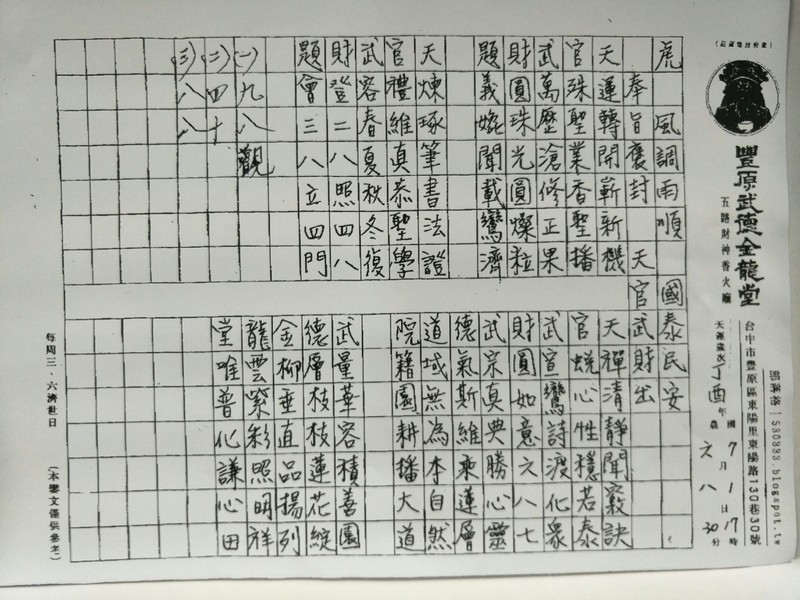 豐原武德金龍堂
五路財神香火廟
部落格 / 530888.blogspot.tw
台中市豐原區東陽里東陽路130巷30號
天運歲次丁酉年 國7月1日17時
農六 八 30分
虎 風調雨順 國泰民安
奉旨褒封 天官武財出
天運轉開嶄新機
官殊聖業香聖播
武萬歷滄修正果
財圓珠光圓燦粒
題義婉聞載鸞濟
天煉琢筆書法證
官禮維真恭聖學
武容春夏秋冬復
財登二八照四八
題會三八立四門
(一)九八觀
(二)四十
(三)八八
天禪清靜聞竅訣
官蛻心性穩若泰
武宣鸞詩渡化眾
財圓如意六八七
武宗真典勝心靈
德氣斯維乘蓮層
道域無為本自然
院籍園耕播大道
武量華容積善園
德層枝枝蓮花綻
金柳垂直品揚列
龍雲繁彩照明祥
堂唯普化謙心田
每周三、六濟世日 (本鸞文僅供參考)